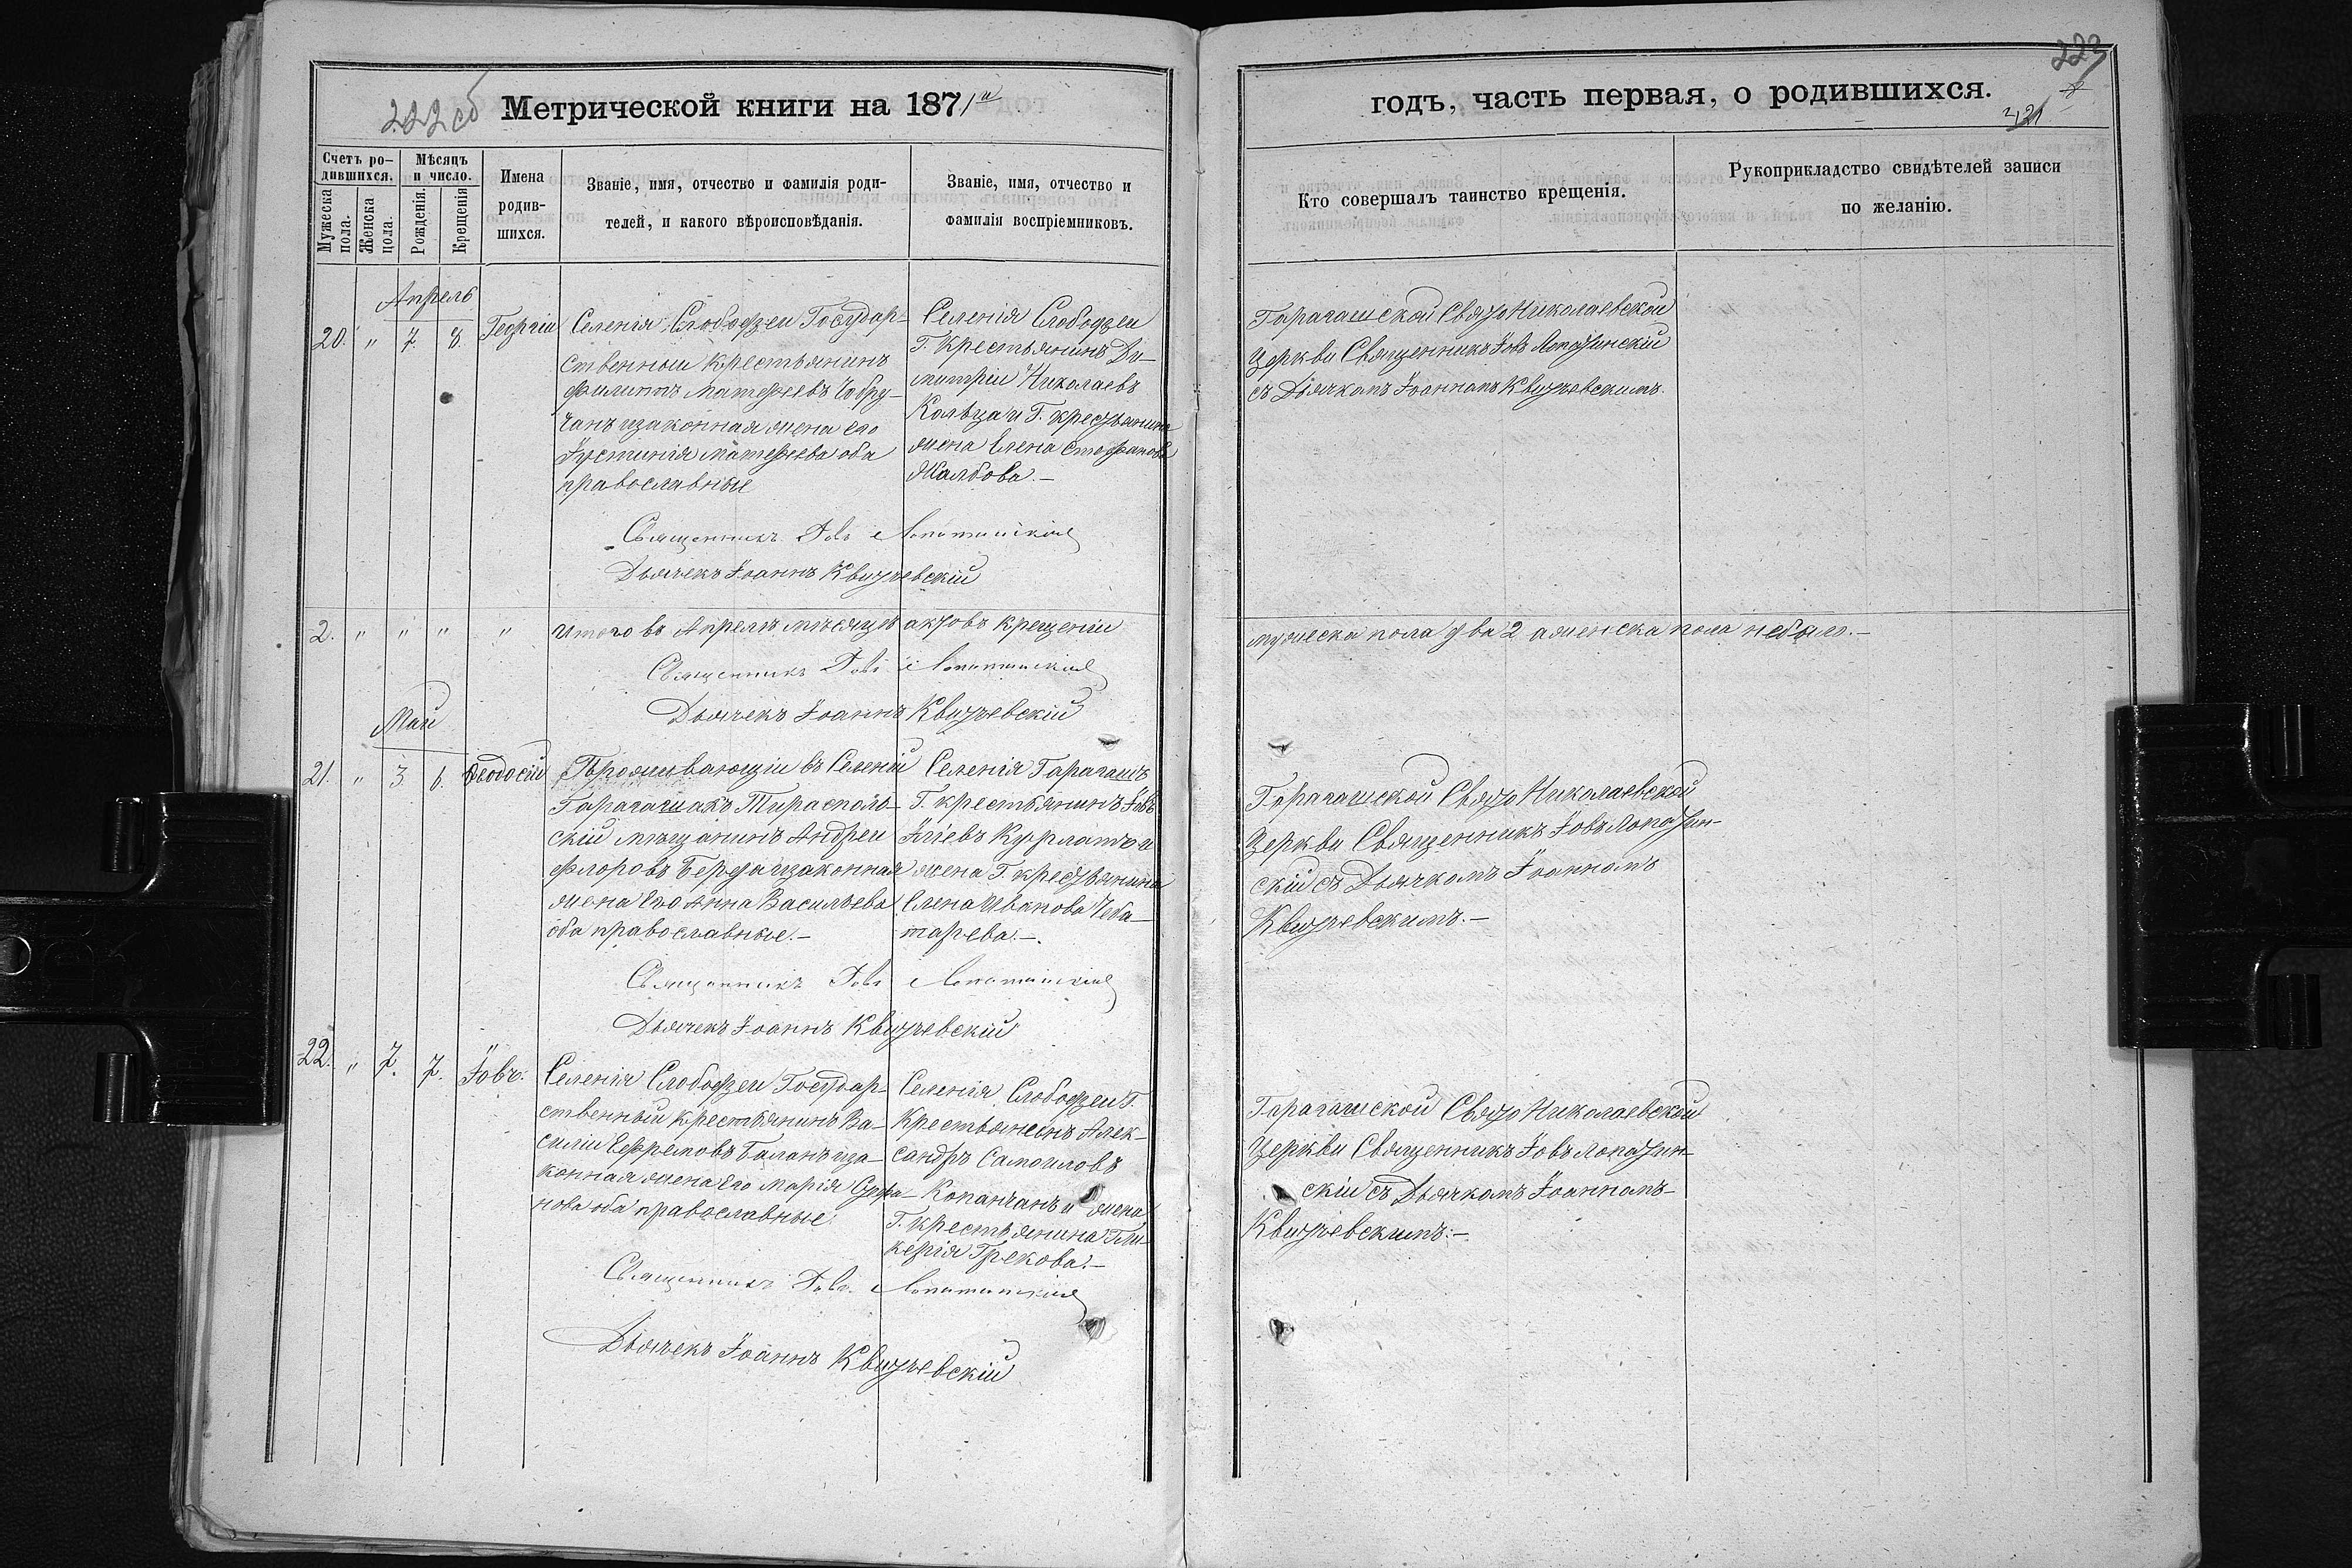 222 об
Метрической книги на 1871й
Счетъ родившихся.
Мужеска пола.
Женска пола.
Мѣсяцъ и число.
Рожденія.
Крещенія
Имена родив-
шихся.
Званіе, имя, отчество и фамилія роди-
телей, и какого вѣроисповѣданія.
Званіе, имя, отчество и
фамилія воспріемниковъ.
Апрель
20. " 7. 8.
Георгіи
Селенія Слободзеи Государ-
ственныи крестьянинъ
Филиппъ Матфеевъ Чобру-
чанъ изаконная жена его
Іустинія Матфеева оба
православные
Селенія Слободзеи
Г. Крестьянинъ Ди-
митріи Николаевъ
Кольца и Г. крестьянина
жена Елена Стефанова
Жалбова.-
Священникъ Іовъ Лопатинскій
Дьячекъ Іоаннъ Квитчевскій
2. " " " "
Итого въ Апрелѣ мѣсяцѣ актовъ крещеніи
Священникъ Іовъ Лопатинскій
Дьячекъ Іоаннъ Квитчевскій
Май
21. " 3. 6.
Феодосіи
Проживающіи въ Селеніи
Гарагашахъ Тирасполь-
скій мѣщанинъ Андреи
Флоровъ Берда изаконная
жена Его Анна Васильева
оба православные.-
Селенія Гарагашъ
Г. крестьянинъ Іовъ
Іліевъ Курлатъ и
жена Г. крестьянина
Елена Иванова Чеба-
тарева.-
Священникъ Іовъ Лопатинскій
Дьячекъ Іоаннъ Квитчевскій
22. " 7. 7.
Іовъ.
Селенія Слободзеи Государ-
ственный крестьянинъ Ва-
силіи Ефремовъ Баланъ иза-
конная жена Его Марія Стефа-
нова оба православные.
Селенія Слободзеи Г.
Крестьянинъ Алек-
сандръ Самоиловъ
Копанчанъ и жена
Г. крестьянина Гли-
керія Грекова.-
Священникъ Іовъ Лопатинскій
Дьячекъ Іоаннъ Квитчевскій
223
годъ, часть первая, о родившихся.
Кто совершалъ таинство крещенія.
Рукоприкладство свидѣтелей записи
по желанію.
Гарагашской Свято Николаевской
Церкви Священникъ Іовъ Лопатинскій
съ Дьячкомъ Іоанномъ Квитчевскимъ.
мужеска пола два 2 а женска пола небыло.-
Гарагашской Свято Николаевской
Церкви Священникъ Іовъ Лопатин-
скій съ Дьячкомъ Іоанномъ
Квитчевскимъ.-
Гарагашской Свято Николаевской
Церкви Священникъ Іовъ Лопатин-
скій съ Дьячкомъ Іоанномъ-
Квитчевскимъ.-